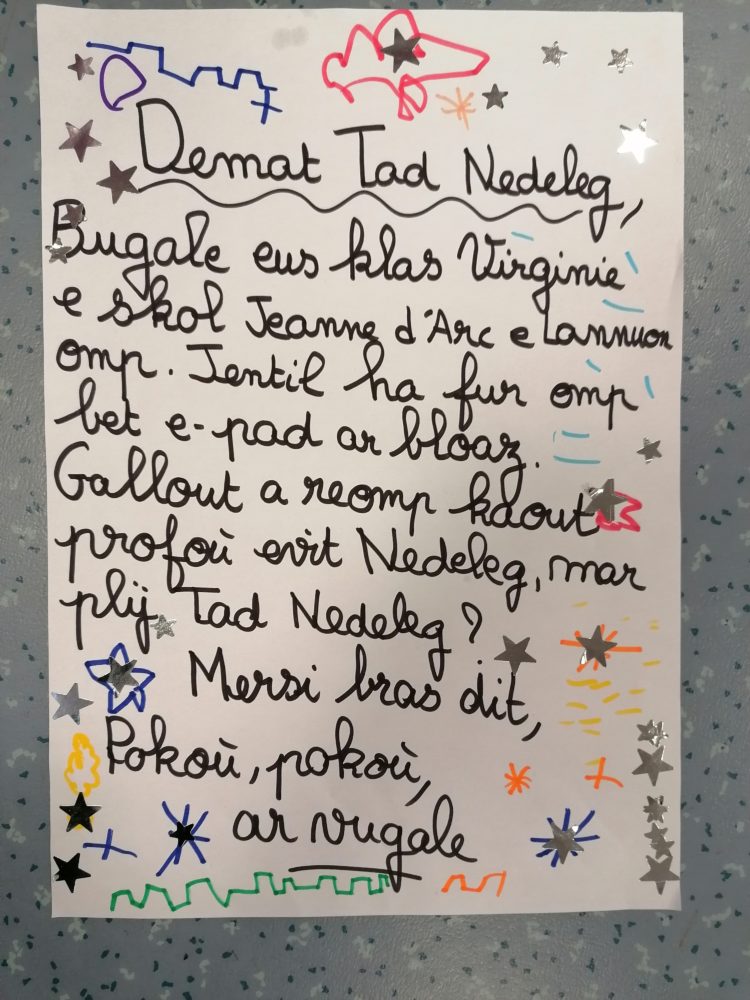 Demat Tad Nedeleg,
Bugale eus klas Virginie
e skol Jeanne d'Arc e Lannuon
omp. Jentil ha fur omp
bet e-pad ar bloaz.
Gallout a reomp kaout
profoù evit Nedeleg, mar
plij Tad Nedeleg ?
Mersi bras dit,
Pokoù, pokoù,
ar vugale